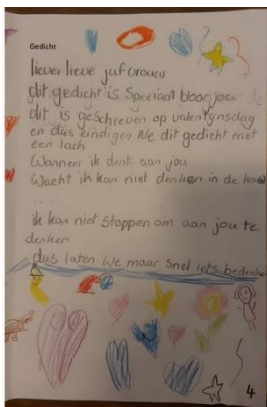 Gedicht
liever lieve juf vrouw
dit gedicht is Speciaal voor jou
dit is geschreven op valentijnsdag
en dus eindigen We dit gedicht met
een lach
Wanneer ik denk aan jou
Wacht ik kan niet denken in de
....
ik kan niet stoppen om aan jou te
denken
dus laten we maar snel iets bedenken
4